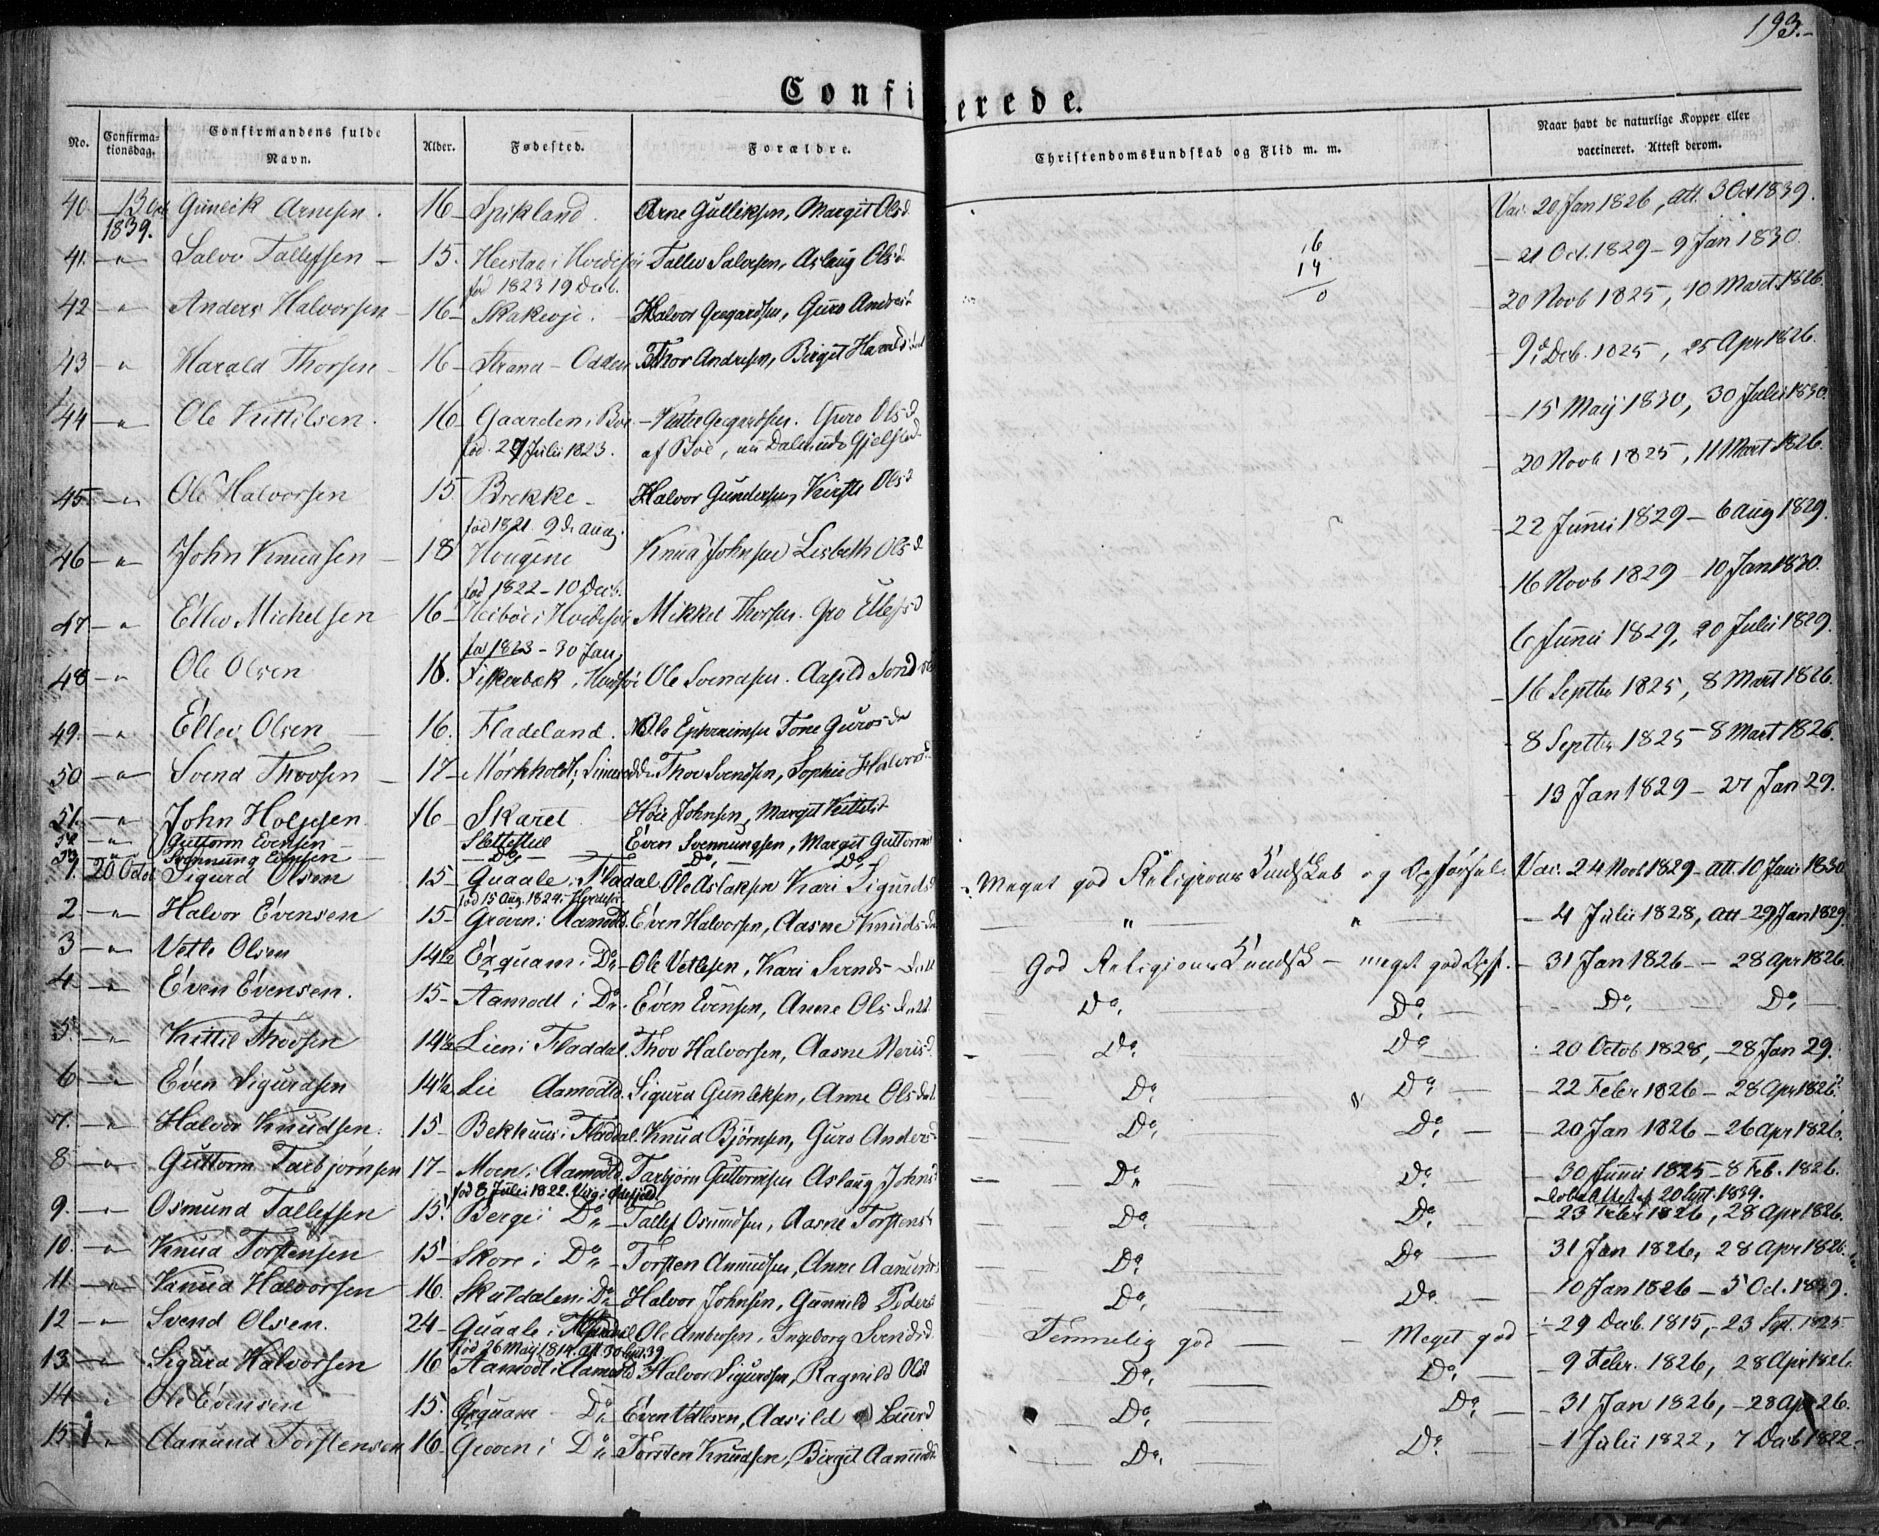 193.-
Confi erede.
No. Confirma-tionsdag. Confirmandens fulde Navn. Alder. Fødested. Forældre. Christendomskundskab og Flid m. m. Naar havt de naturlige Kopper eller vaccineret. Attest derom.
40. 13 Oct 1839. Gunleik Arnesen. 16 Spikland. Arne Gulliksen, Margit Olsd Vac. 20 Jan 1826, Att. 3 Oct 1839.
41. " Salve Tallefsen 15. i Tallev Salvesen, Aslaug Olsd. 21 Oct. 1829 - 9 Jan 1830.
fød 1823 19 Decb.
16
14
0
42 " Anders Halvorsen 16 Halvor Gregardsen, Guro 20 Novb 1825, 10 Mart. 1826.
43 " Harald Thorsen 16 Strand - Odden Thor Andresen, Birgit Harald 9de Decb. 1825, 25 Apr 1826.
44 " Ole Kittilsen. 16 Gaarden i Boe Guro Olsd 15 Maij 1830, 30 Julii 1830.
fød. 27 Julii 1823. af Boe, nu
20 Novb 1825, 11 Mart 1826.
45. " Ole Halvorsen 15 Brekke Halvor Gundersen, Kirsti Olsd 22 Junii 1829 - 6 Aug 1829.
fød 1821. 9de Aug.
46 " John Knudsen 18 Hougene Knud Johnsen Lisbeth Olsd 16 Novb 1829 - 10 Jan 1830.
fød 1822 - 10 Decb.
47 " Ellev Michelsen 16 i Mikkel Thorsen. Gro Ellefsd 6 Junii 1829, 20 Julii 1829.
fød 1823 - 30 Jan
48 " Ole Olsen 16. Fiskerbæk, Ole Svendsen. 16 Septbr 1825, 8 Mart 1826.
49. " Ellev Olsen 16. Fladeland. Ole Ephraimsen Tone 8 Septbr 1825 - 8 Mart 1826.
50 " Svend Thovsen 17 Mørkholdt, Thov Svendsen, Sophie Halvors 13 Jan 1829 - 27 Jan 29.
51. " John 16 Skaret Johnsen, Margit Kittilsd
52 " Guttorm Evensen Slettestul Even Svennungsen, Margit Guttorms
53 " Svennung Evensen Do Do Do
1. 20 Octob Sigurd Olsen 15 Quaale i Fladal Ole Aslaksen Kari Sigurdsd Meget god Religions Kundskab og Opførsel. Vac. 24 Novb 1829 - Att. 10 Janr 1830
fød 15 Aug. 1824.
2. " Halvor Evensen 15 Groven i Aamodtsd. Even Halvorsen, Aasne Knuds " " 4 Julii 1828, Att - 29 Jan 1829.
3 " Vetle Olsen 14½ i Do Ole Vetlesen, Kari Svends Datt God Religions Kundsk - meget god Opf. 31 Jan 1826 - 28 Apr 1826.
4 " Even Evensen. 15 Aamodt i Do. Even Evensen, Anne Ols Datt. Do. Do. Do. Do.
5. " Kittil Thovsen 14½ Lien i Fladdal. Thov Halvorsen, Aasne Do. Do 20 Octob 1828, - 28 Jan 29.
6 " Even Sigurdsen 14½ Lie Aamodtsd. Sigurd Gunleksen, Anne Olsdat Do. Do. 22 Febr 1826 - 28 Apr 1826.
7. " Halvor Knudsen. 15 Bekhuus i Fladdal. Knud Bjørnsen, Guro Anders Do. Do. 20 Jan 1826 - 26 Apr 1826.
8 " Guttorm Tarbjørnsen 17 Moen i Aamodtsd. Tarbjørn Guttormsen Aslaug Johns Do Do. 30 Junii 1825 - 8 Feb. 1826.
fød 8 Julii 1822. Attest 20 Spt. 1839.
9. " Osmund Tallefsen 15. Berge i Do. Tallef Osmundsen, Aasne Torstens Do. Do. 23 Febr 1826, 28 Apr 1826.
10. " Knud Torstensen 15 Skore i Do. Torsten Amundsen, Anne Aamunds Do. Do 31 Jan 1826, 28 Apr 1826.
11 " Knud Halvorsen 16. Skuldalen i Do Halvor Johnsen, Gunnild Peders Do. Do. 10 Jan 1826 - 5 Oct. 1839.
12 " Svend Olsen. 24 Quaale i Ole Ambersen, Ingeborg Svendsd. Temmelig god Meget god 29 Decb. 1815, - 23 Spt. 1825
fød 26 Maij 1814. att 30 Spt. 39
13. " Sigurd Halvorsen 16 Aamodt i Aamodtsd Halvor Sigurdsen, Ragnild Olsd Do. Do. 9 Febr. 1826, 28 Apr 1826.
14 " Ole Evensen 15. Do. Even Vetlesen, Aasild Do. Do. 31 Jan 1826, - 28 Apr 26.
15 " Aamund Torstensen 16 Groven i Do. Torsten Knudsen, Birgit Aamunds Do. Do. 1 Julii 1822, 7 Decb 1822.